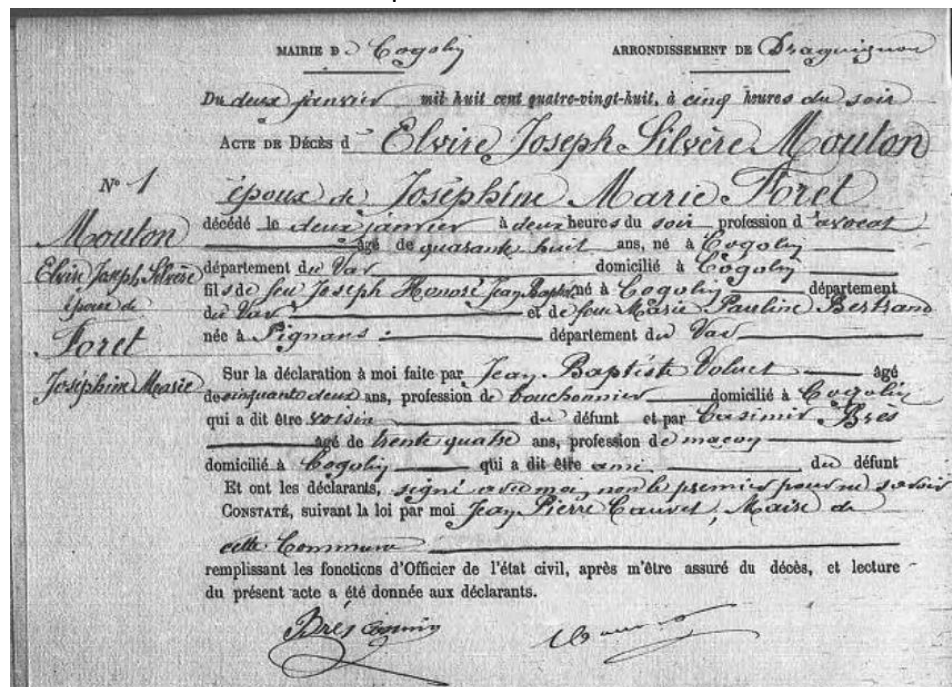 MAIRIE D Cogolin ARRONDISSEMENT DE Draguignan
Du deux janvier mil huit cent quatre-vingt-huit, à cinq heures du soir
ACTE DE DÉCÈS d' Elvire Joseph Silvère Mouton
époux de Joséphine Marie Foret
N° 1
Mouton
Elvire Joseph Silvère
époux de
Foret
Joséphine Marie
décédé le deux janvier à deux heures du soir profession d'avocat
âgé de quarante huit ans, né à Cogolin
département du Var domicilié à Cogolin
fils de feu Joseph Honoré Jean Baptiste né à Cogolin département
du Var et de feue Marie Pauline Bertrand
née à Pignans département du Var
Sur la déclaration à moi faite par Jean Baptiste âgé
de cinquante deux ans, profession de bouchonnier domicilié à Cogolin
qui a dit être voisin du défunt et par Casimir Brès
âgé de trente quatre ans, profession de maçon
domicilié à Cogolin qui a dit être ami du défunt
Et ont les déclarants, signé avec moi, non le premier pour ne savoir
CONSTATÉ, suivant la loi par moi Jean Pierre Cauvet, Maire de
cette Commune
remplissant les fonctions d'Officier de l'état civil, après m'être assuré du décès, et lecture
du présent acte a été donnée aux déclarants.
Brès Casimir